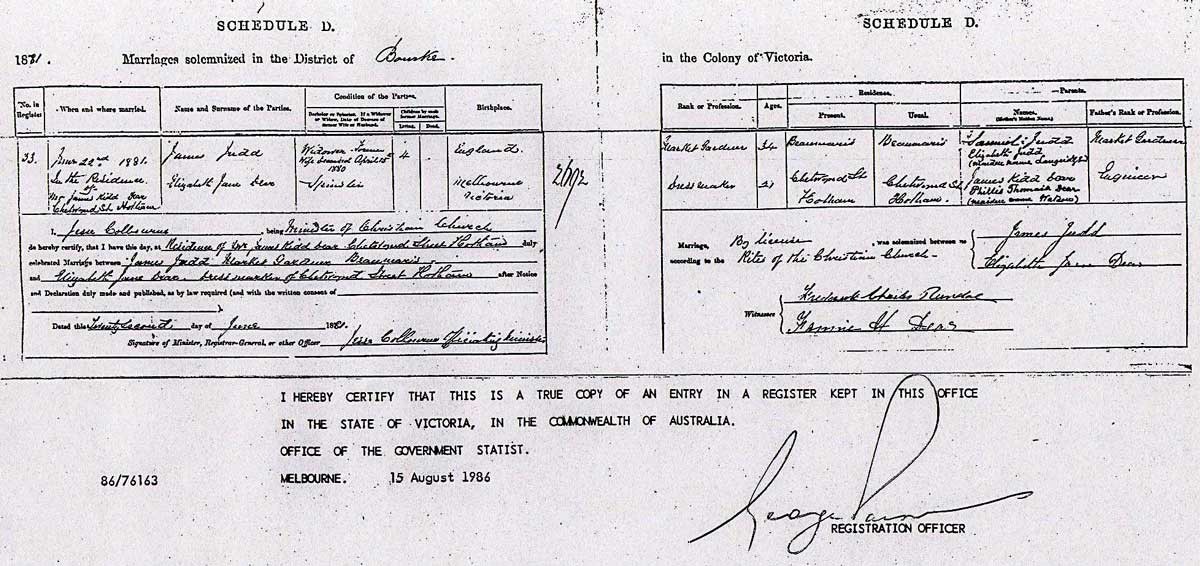 SCHEDULE D.
1881. Marriages solemnized in the District of Bourke.
No. in Register
When and where married.
Name and Surname of the Parties.
Condition of the Parties.
Bachelor or Spinster. If a Widower or Widow, Date of Decease of former Wife or Husband.
Children by each former Marriage.
Living. Dead.
Birthplace.
33.
June 22nd 1881.
In the Residence
of
Mr James Kidd Dear
Chetwynd St Hotham
James Judd
Elizabeth Jane Dear
Widower Former
Wife Deceased April 15th
1880
4
Spinster
England
Melbourne
Victoria
I, Jesse Colbourne, being Minister of Christian Church
do hereby certify, that I have this day, at Residence of Mr James Kidd Dear Chetwynd Street Hotham duly
celebrated Marriage between James Judd Market Gardener Beaumaris
and Elizabeth Jane Dear Dressmaker of Chetwynd Street Hotham after Notice
and Declaration duly made and published, as by law required (and with the written consent of
).
Dated this Twenty Second day of June 1881.
Signature of Minister, Registrar-General, or other Officer Jesse Colbourne Officiating Minister
SCHEDULE D.
in the Colony of Victoria.
Rank or Profession.
Ages.
Residence.
Present. Usual.
Parents.
Names. (Mother's Maiden Name.)
Father's Rank or Profession.
Market Gardener 34 Beaumaris Beaumaris
Samuel Judd
Elizabeth Judd
(maiden name
Market Gardener
Dressmaker 21
Chetwynd St
Hotham
Chetwynd St
Hotham.
James Kidd Dear
Phillis Thomasin Dear
(maiden name
Engineer
Marriage, By License, was solemnized between us
according to the Rites of the Christian Church
James Judd
Elizabeth Jane Dear
Witnesses
Frederick Charles
Fannie H Dear
I HEREBY CERTIFY THAT THIS IS A TRUE COPY OF AN ENTRY IN A REGISTER KEPT IN THIS OFFICE
IN THE STATE OF VICTORIA, IN THE COMMONWEALTH OF AUSTRALIA.
OFFICE OF THE GOVERNMENT STATIST.
86/76163
MELBOURNE. 15 August 1986
REGISTRATION OFFICER